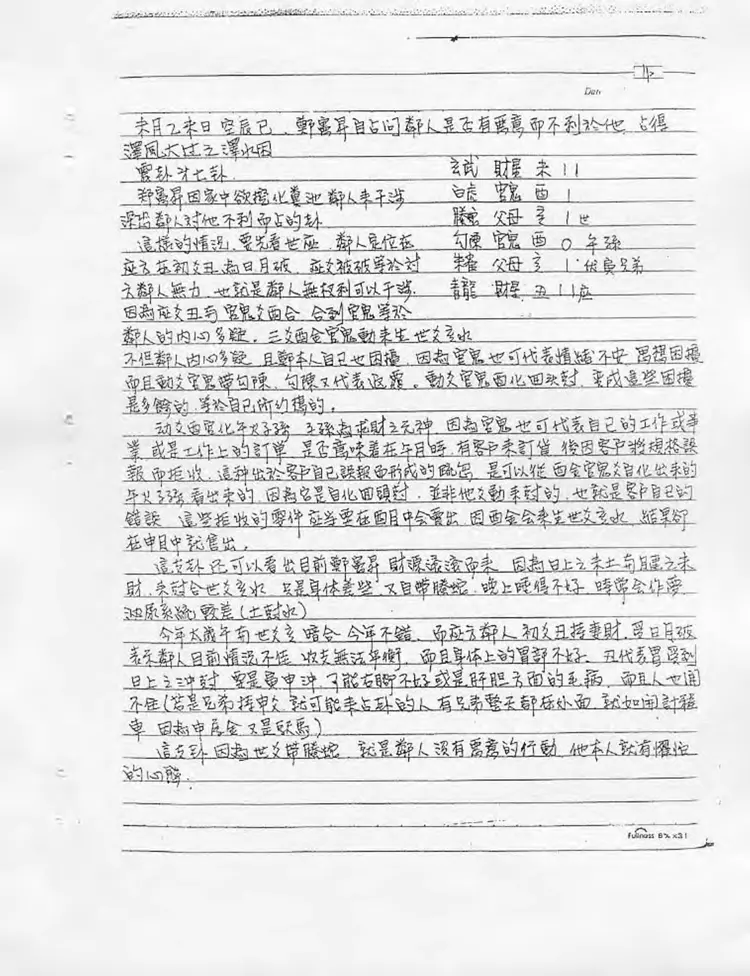 Date
未月乙未日 空辰巳. 鄭富昇自占问鄰人是否有惡意而不利於他 占得
澤風大过之澤水困
震卦才七卦. 玄武 財星 未 11
鄭富昇因家中欲 化糞池 鄰人来干涉 白虎 官鬼 酉 1
深 鄰人對他不利而占的卦 騰蛇 父母 亥 1 世
這樣的情況, 要先看世应, 鄰人定位在 勾陳 官鬼 酉 0 午孫
应方在初爻丑為日月破, 应爻被破等於対 朱雀 父母 亥 1 伏寅兄弟
方鄰人無力, 也就是鄰人無权利可以干涉. 青龍 財星 丑 11 应
因為应爻丑与官鬼爻酉合 合到官鬼等於
鄰人的内心多疑. 三爻酉金官鬼動来生世爻亥水
不但鄰人内心多疑 且鄭本人自己也困擾 因為官鬼也可代表情緒不安
而且動爻官鬼帶勾陳, 勾陳又代表 動爻官鬼酉化回头尅, 变成這些困擾
是多餘的, 等於自己所 的.
动爻酉化午火子孫 子孫為求財之元神 因為官鬼也可代表自己的工作或事
業 或是工作上的訂單 是否意味着在午月時, 有客戶来訂貨 後因客戶將規格誤
報而拒收, 這种出於客戶自己誤報而形成的 是可以從酉金官鬼爻自化出来的
午火子孫看出来的 因為它是自化回頭尅, 並非他爻動来尅的, 也就是客戶自己的
錯誤 這些拒收的零件应当要在酉月中会賣出 因酉金会来生世爻亥水, 結果卻
在申月中就售出.
這支卦还可以看出目前鄭富昇財源滾滾而来 因為日上之未土与月建之未
財, 来尅合世爻亥水 只是身体差些 又自帶騰蛇 晚上睡得不好 時常会作夢
泌尿系統較差(土尅水)
今年太歲午与世爻亥暗合 今年不錯, 而应方鄰人初爻丑持妻財, 受日月破
表示鄰人目前情況不佳 收支無法平衡, 而且身体上的胃部不好 丑代表胃受到
日上之冲尅 要是寅申冲 可能右脚不好或是肝胆方面的毛病, 而且人也閒
不住(若是兄弟持申爻就可能来占卦的人有兄弟整天都在外面 就如開計程
車 因為申居金又是馭馬)
這支卦 因為世爻帶騰蛇 就是鄰人没有惡意的行動 他本人就有懼怕
的心態.
fullness 6% x31